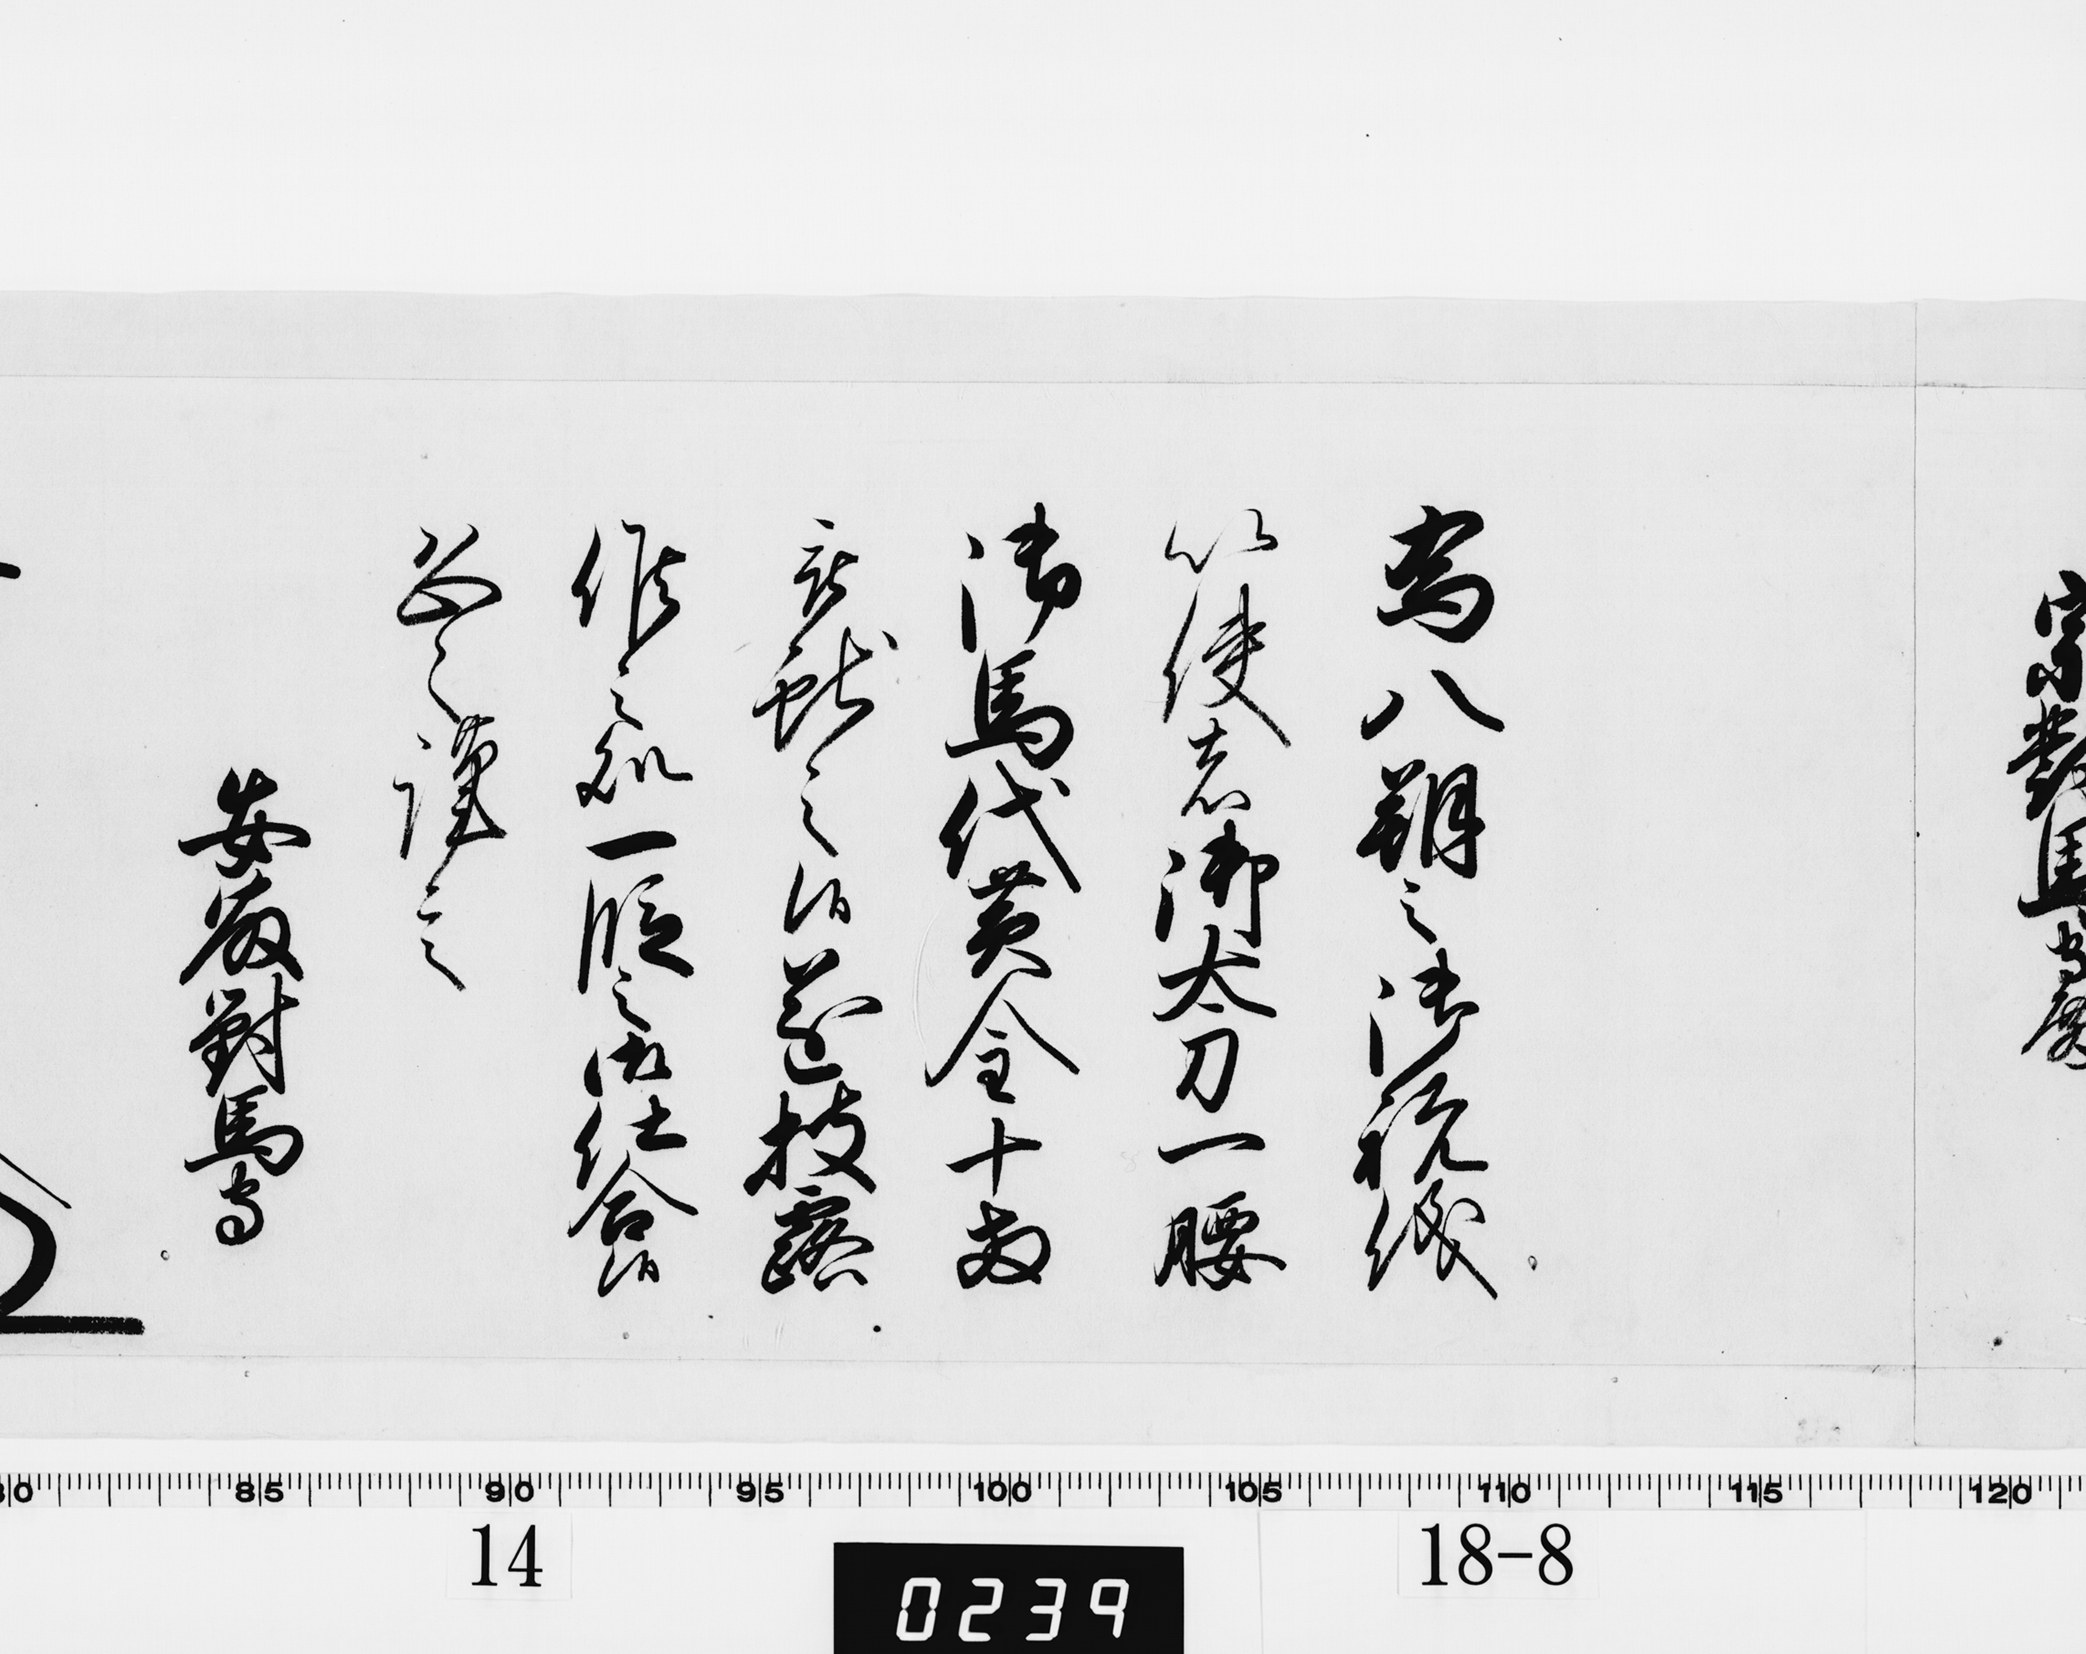 宗對馬守殿
為八朔之御祝儀
以使者御太刀一腰
御馬代黄金十両
被献之候遂披露
候之処一段之御仕合候
恐々謹言
安藤對馬守
80 85 90 95 100 105 110 115 120
14 18-8
0239